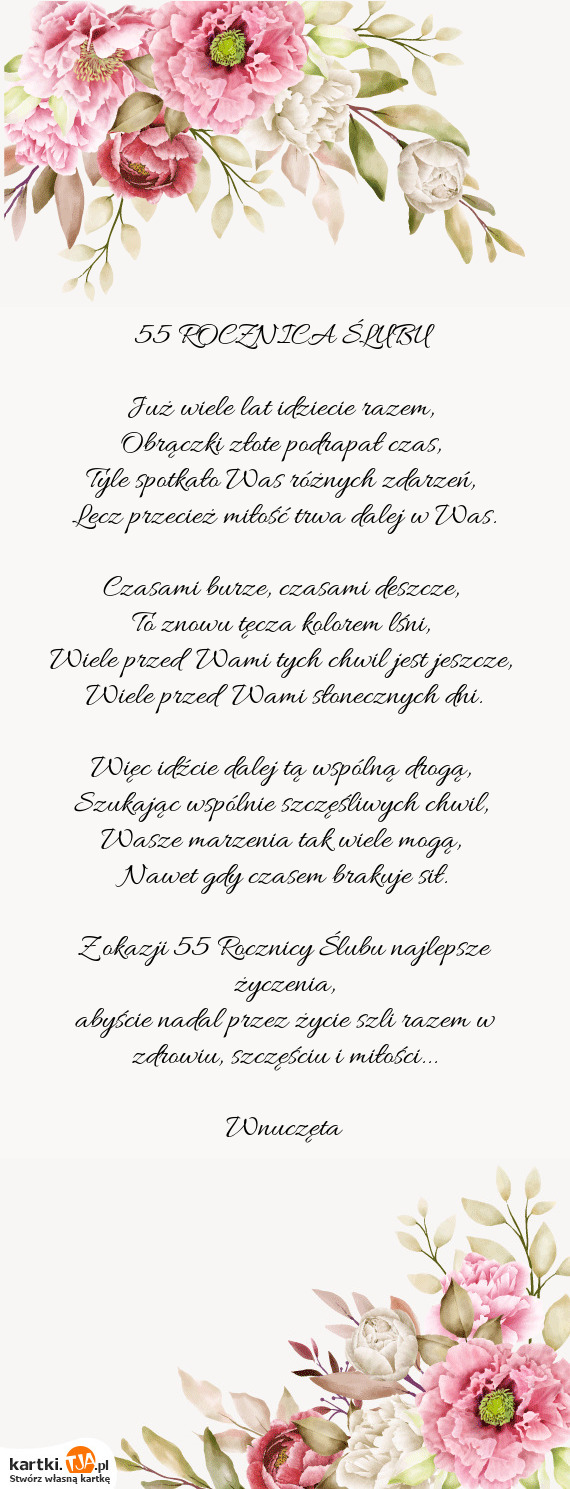 55 ROCZNICA ŚLUBU
Już wiele lat idziecie razem,
Obrączki złote podrapał czas,
Tyle spotkało Was różnych zdarzeń,
Lecz przecież miłość trwa dalej w Was.
Czasami burze, czasami deszcze,
To znowu tęcza kolorem lśni,
Wiele przed Wami tych chwil jest jeszcze,
Wiele przed Wami słonecznych dni.
Więc idźcie dalej tą wspólną drogą,
Szukając wspólnie szczęśliwych chwil,
Wasze marzenia tak wiele mogą,
Nawet gdy czasem brakuje sił.
Z okazji 55 Rocznicy Ślubu najlepsze
życzenia,
abyście nadal przez życie szli razem w
zdrowiu, szczęściu i miłości...
Wnuczęta
kartki.TJA.pl
Stwórz własną kartkę